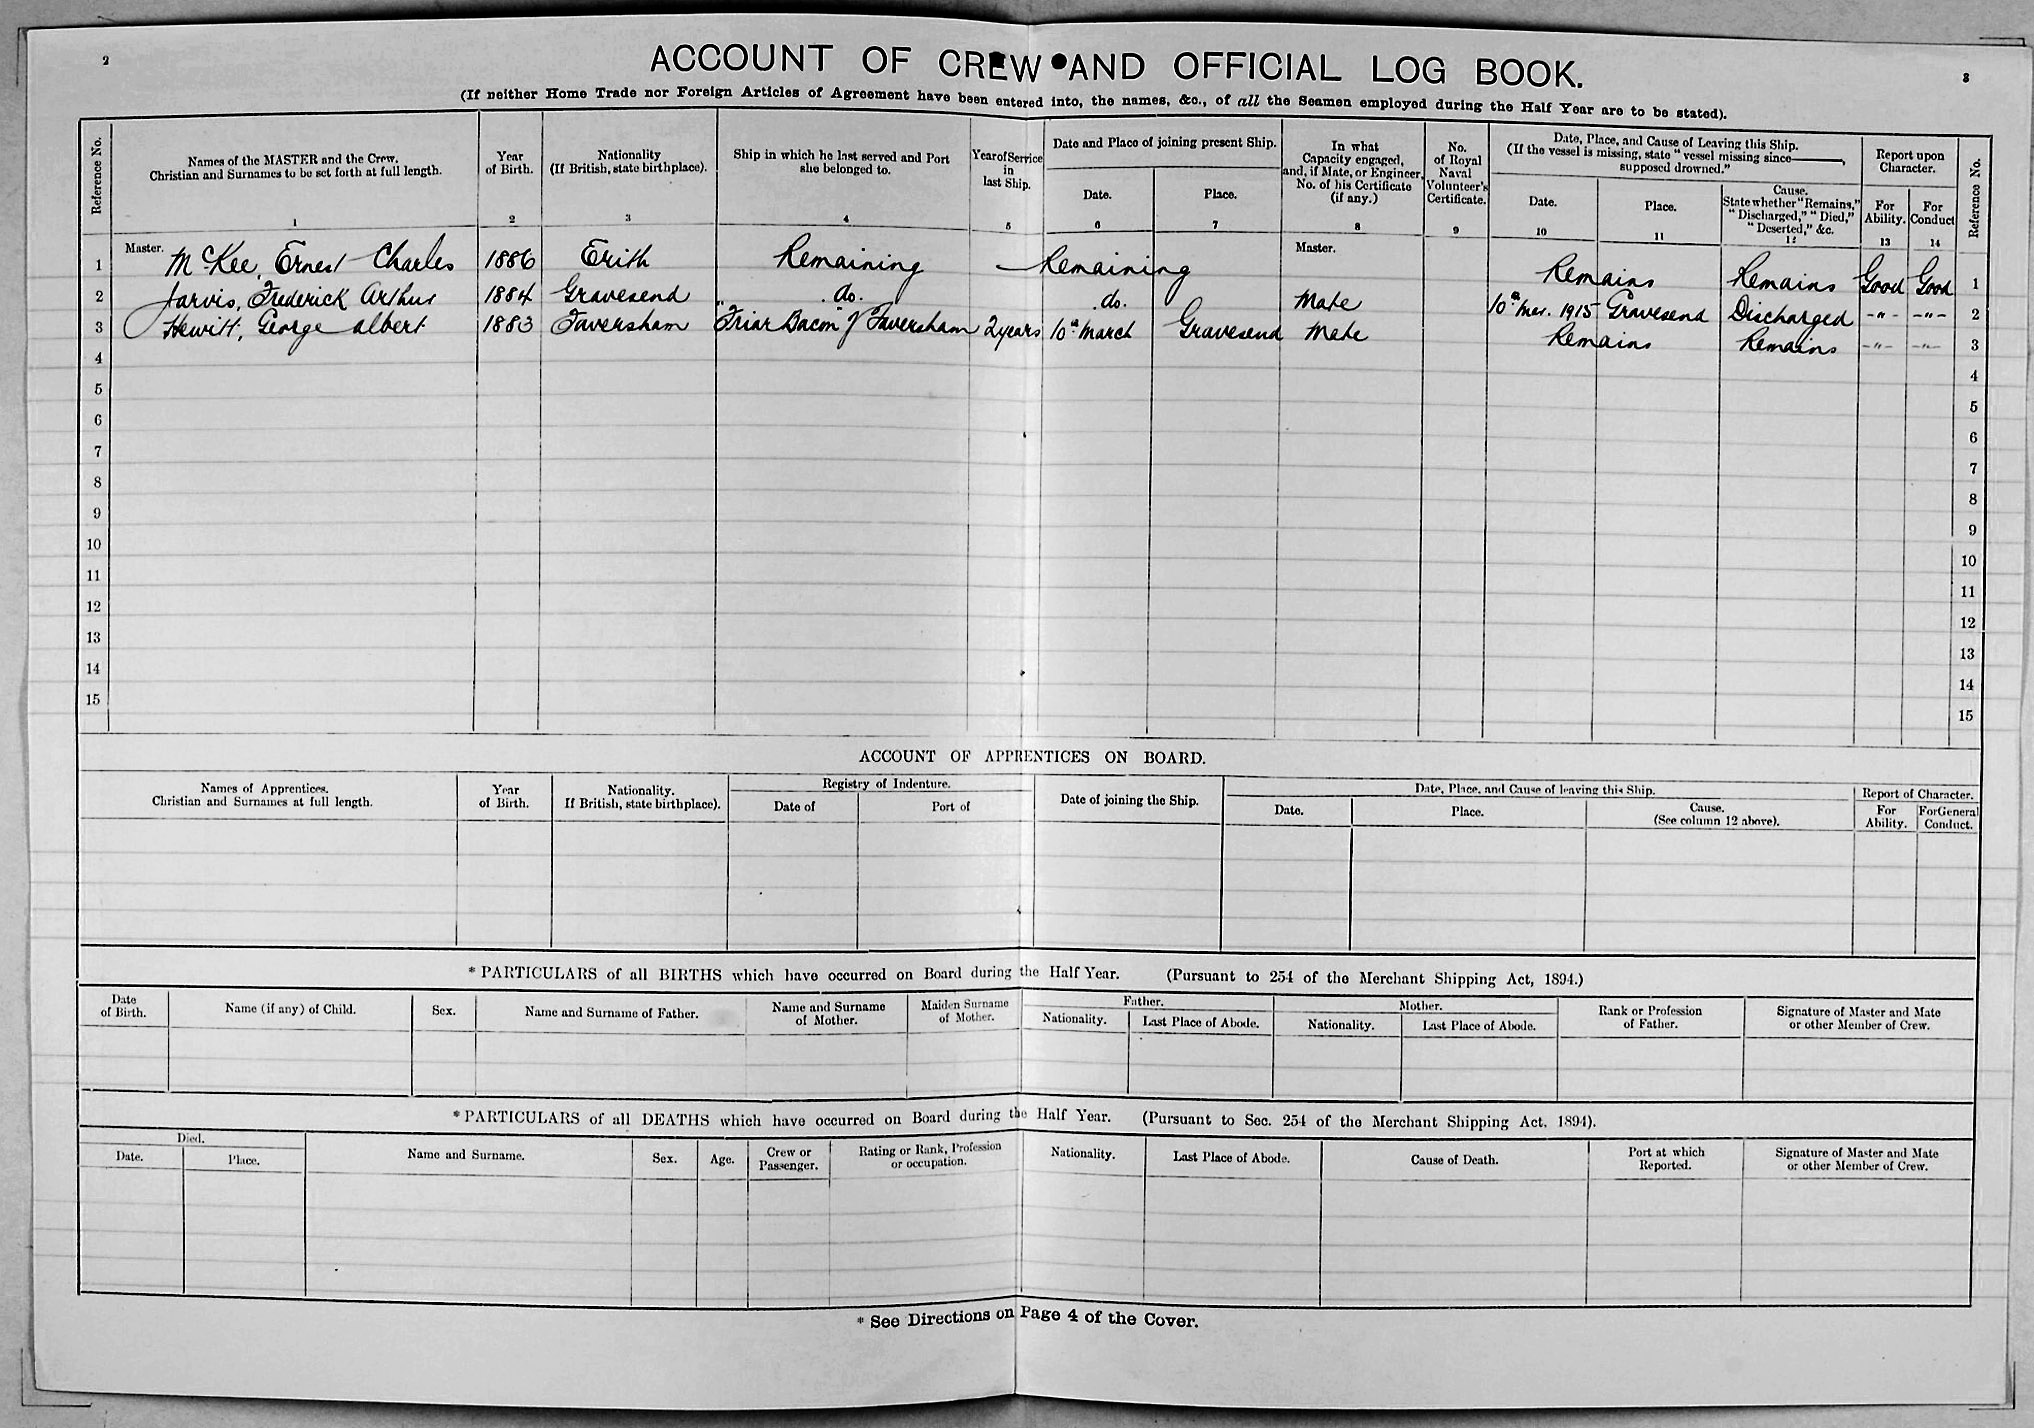 2
ACCOUNT OF CREW AND OFFICIAL LOG BOOK.
3
(If neither Home Trade nor Foreign Articles of Agreement have been entered into, the names, &c., of all the Seamen employed during the Half Year are to be stated).
Reference No.
Names of the MASTER and the Crew.
Christian and Surnames to be set forth at full length.
1
Year
of Birth.
2
Nationality
(If British, state birthplace).
3
Ship in which he last served and Port
she belonged to.
4
Year of Service
in
last Ship.
5
Date and Place of joining present Ship.
Date.
6
Place.
7
In what
Capacity engaged,
and, if Mate, or Engineer,
No. of his Certificate
(if any.)
8
No.
of Royal
Naval
Volunteer's
Certificate.
9
Date, Place, and Cause of Leaving this Ship.
(If the vessel is missing, state "vessel missing since———,
supposed drowned."
Date.
10
Place.
11
Cause.
State whether "Remains,"
"Discharged," "Died,"
"Deserted," &c.
12
Report upon
Character.
For
Ability.
13
For
Conduct
14
Reference No.
1 Master. McKee, Ernest Charles 1886 Erith Remaining — Remaining Master. Remains Remains Good Good 1
2 Jarvis, Frederick Arthur 1884 Gravesend " do. do. Mate 10th Mar. 1915 Gravesend Discharged -"- -"- 2
3 Hewitt, George Albert 1883 Faversham "Friar Bacon" of Faversham 2 years 10th March Gravesend Mate Remains Remains -"- -"- 3
4 4
5 5
6 6
7 7
8 8
9 9
10 10
11 11
12 12
13 13
14 14
15 15
ACCOUNT OF APPRENTICES ON BOARD.
Names of Apprentices.
Christian and Surnames at full length.
Year
of Birth.
Nationality.
If British, state birthplace).
Registry of Indenture.
Date of
Port of
Date of joining the Ship.
Date, Place, and Cause of leaving this Ship.
Date.
Place.
Cause.
(See column 12 above).
Report of Character.
For
Ability.
For General
Conduct.
* PARTICULARS of all BIRTHS which have occurred on Board during the Half Year. (Pursuant to 254 of the Merchant Shipping Act, 1894.)
Date
of Birth.
Name (if any) of Child.
Sex.
Name and Surname of Father.
Name and Surname
of Mother.
Maiden Surname
of Mother.
Father.
Nationality.
Last Place of Abode.
Mother.
Nationality.
Last Place of Abode.
Rank or Profession
of Father.
Signature of Master and Mate
or other Member of Crew.
* PARTICULARS of all DEATHS which have occurred on Board during the Half Year. (Pursuant to Sec. 254 of the Merchant Shipping Act, 1894).
Died.
Date.
Place.
Name and Surname.
Sex.
Age.
Crew or
Passenger.
Rating or Rank, Profession
or occupation.
Nationality.
Last Place of Abode.
Cause of Death.
Port at which
Reported.
Signature of Master and Mate
or other Member of Crew.
* See Directions on Page 4 of the Cover.